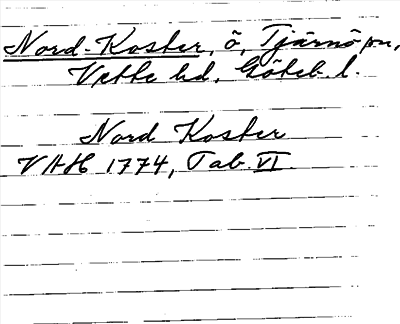 Nord-Koster, ö, Tjärnö sn,
Vette hd, Göteb. l.
Nord Koster
VAH 1774, Tab. VI